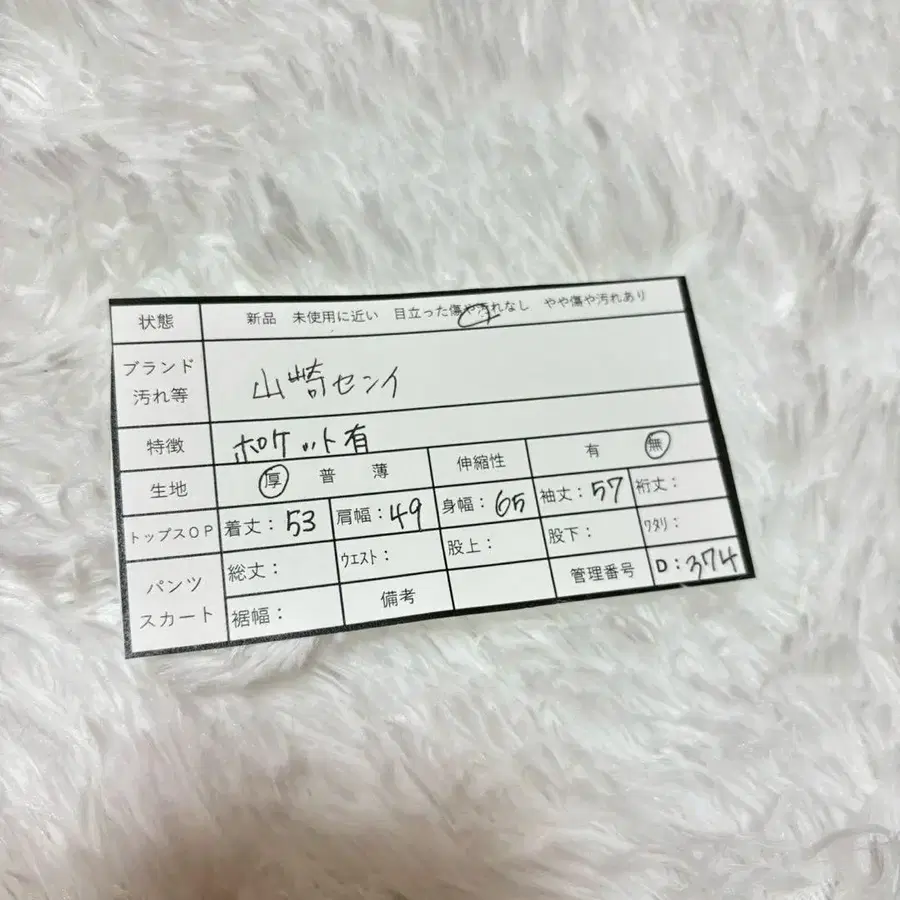 状態 新品 未使用に近い 目立った傷や汚れなし やや傷や汚れあり
ブランド
汚れ等
山崎センイ
特徴 ポケット有
生地 厚 普 薄 伸縮性 有 無
トップスOP 着丈:53 肩幅:49 身幅:65 袖丈:57 裄丈:
パンツ
スカート
総丈: ウエスト: 股上: 股下: ワタリ:
裾幅: 備考 管理番号 D:374